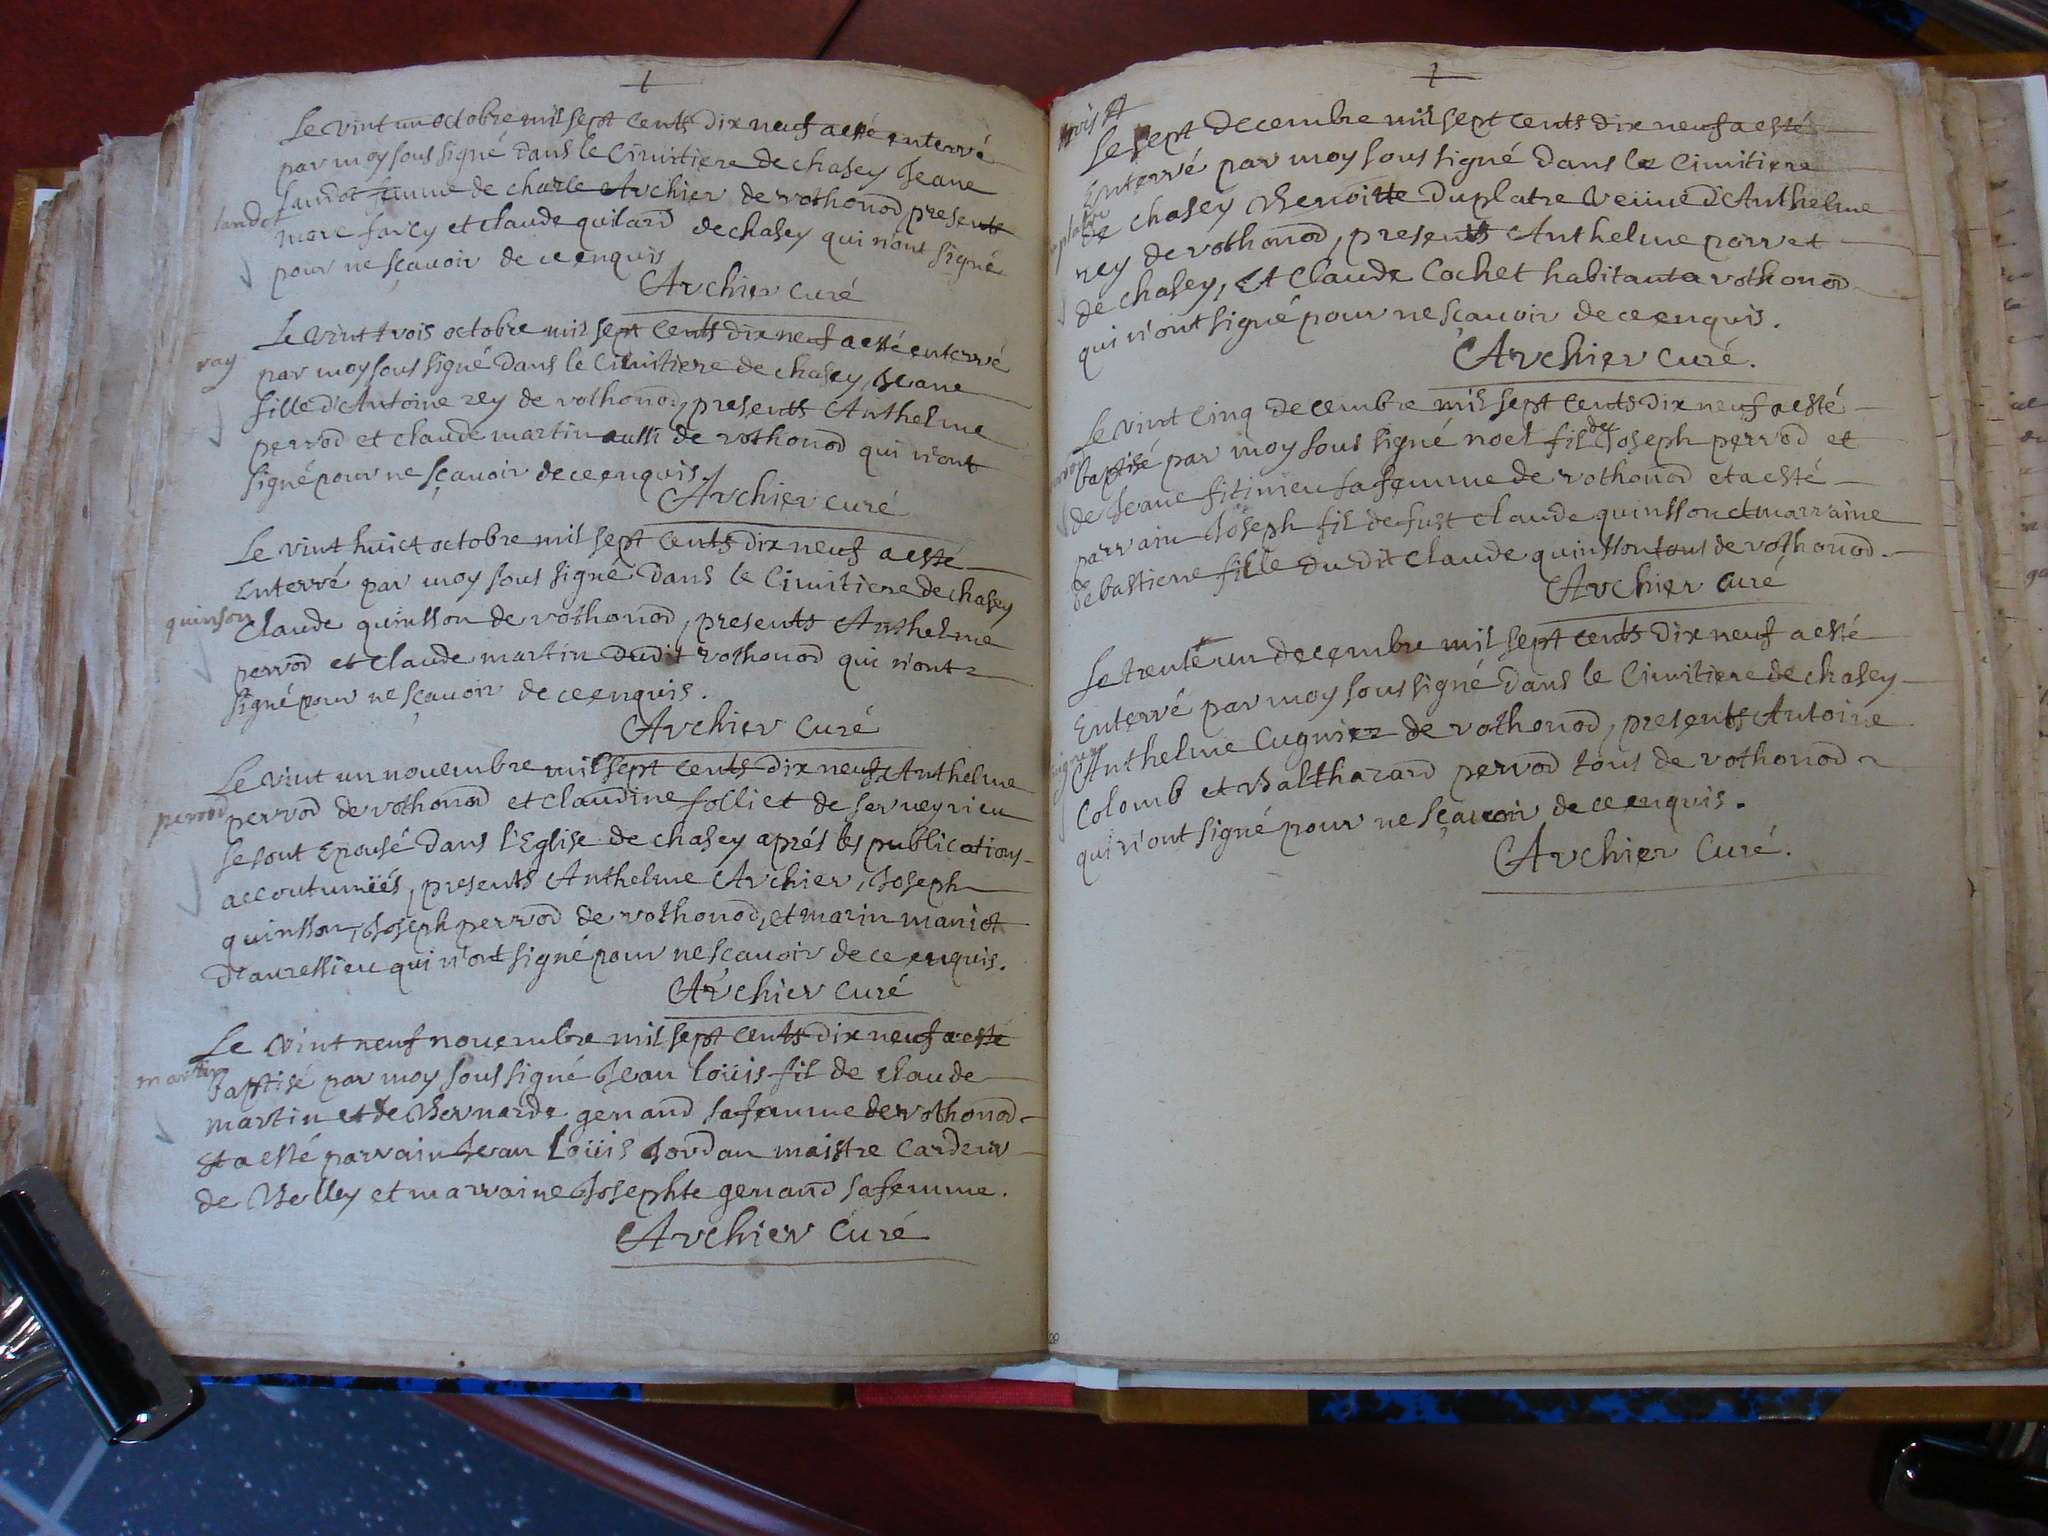 Le vint un octobre mil sept cents dix neuf a esté enterré
par moy sous signé dans le Cimitiere de chasey Jeane
landot femme de charle Archier de vothonod presents
landot
more farcy et claude quilard de chasey qui n'ont signé
pour ne sçauoir de ce enquis
Archier curé
Le vint trois octobre mil sept cents dix neuf a esté enterré
ray
par moy sous signé dans le Cimitiere de chasey, Jeane
fille d'Antoine rey de vothonod, presents Anthelme
perrod et claude martin aussi de vothonod qui n'ont
signé pour ne sçauoir de ce enquis.
Archier curé
Le vint huict octobre mil sept cents dix neuf a esté
Enterré par moy sous signé dans le Cimitiere de chasey
quinson
Claude quinsson de vothonod, presents Anthelme
perrod et claude martin dudit vothonod qui n'ont
signé pour ne sçauoir de ce enquis.
Archier curé
Le vint un nouembre mil sept cents dix neuf, Anthelme
perrod
perrod de vothonod et claudine folliet de serueyrieu
se sont Epousé dans l'Eglise de chasey aprés les publications
accoutumées, presents Anthelme Archier, Joseph
quinsson, Joseph perrod de vothonod, et marin maniot
d'auressieu qui n'ont signé pour ne scauoir de ce enquis.
Archier curé
Le vint neuf nouembre mil sept cents dix neuf a esté
martin
baptisé par moy sous signé Jean loüis fil de claude
martin et de Bernarde genand sa femme de vothonod
Et a esté parrain Jean loüis Jordan maistre Cardeur
de Belley et marraine Josephte genand sa femme.
Archier curé
Le sept decembre mil sept cents dix neuf a esté
Enterré par moy sous signé dans le Cimitiere
de chasey Benoitte duplatre veüue d'Anthelme
rey de vothonod, presents Anthelme parret
de chasey, Et Claude Cochet habitant a vothonod
qui n'ont signé pour ne sçauoir de ce enquis.
Archier curé.
Le vint Cinq decembre mil sept cents dix neuf a esté
baptisé par moy sous signé noel fil de Joseph perrod et
de Jeane fitinieu sa femme de vothonod et a esté
parrain Joseph fil de fust claude quinsson et marraine
sebastiene fille du dit claude quinsson tous de vothonod.
Archier curé
Le trente un decembre mil sept cents dix neuf a esté
Enterré par moy sous signé dans le Cimitiere de chasey
Anthelme Cugnier de vothonod, presents Antoine
Colomb et Balthazard perrod tous de vothonod
qui n'ont signé pour ne sçauoir de ce enquis.
Archier Curé.